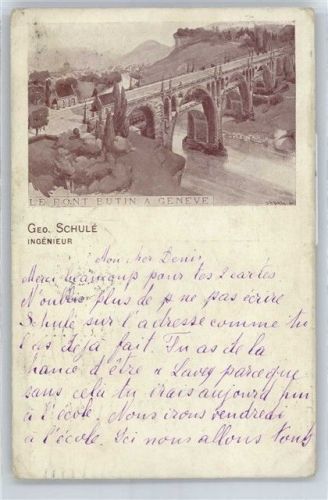 LE PONT BUTIN A GENÈVE
GEO. SCHULÉ
INGÉNIEUR
Mon cher Denis,
Merci beaucoup pour tes 2 cartes
N'oublie plus de ne pas écrire
Schulé sur l'adresse comme tu
l'as déjà fait. Tu as de la
chance d'être à Lavey parceque
sans cela tu irais aujourd'hui
à l'école. Nous irons vendredi
à l'école. Ici nous allons tous